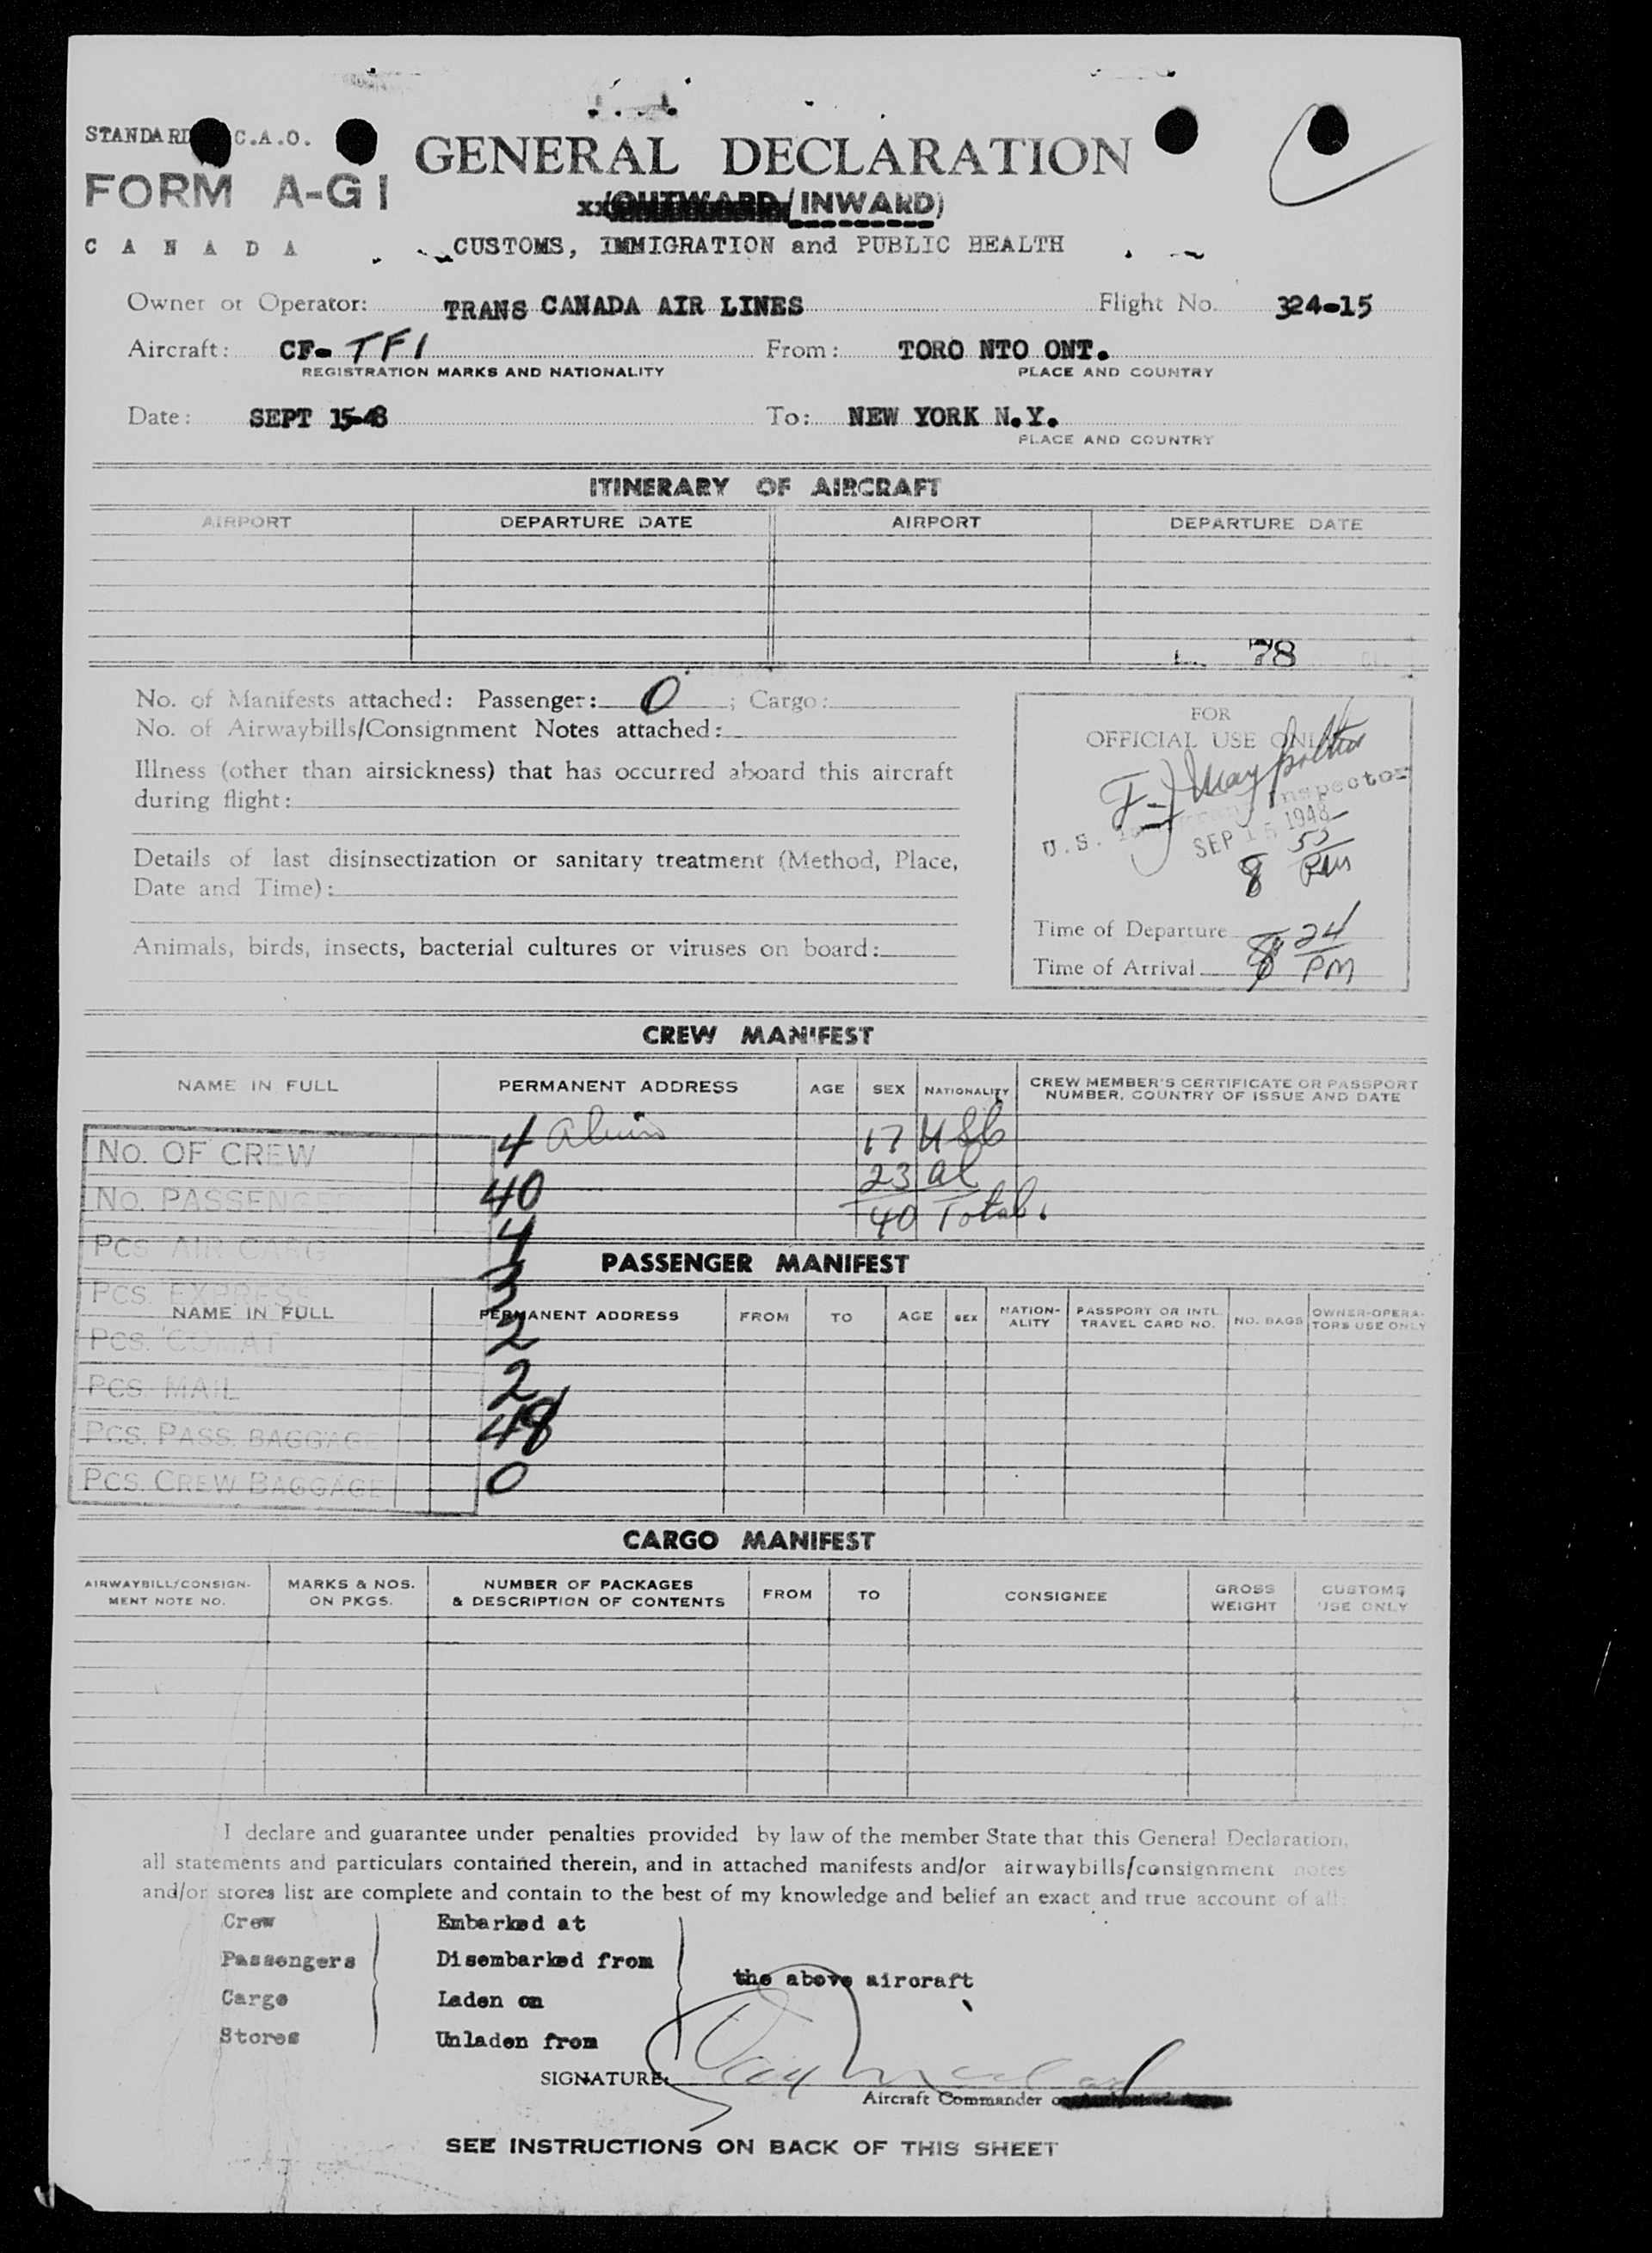 STANDARD C.A.O.
FORM A-G1
CANADA
GENERAL DECLARATION
xx(OUTWARD/INWARD)
CUSTOMS, IMMIGRATION and PUBLIC HEALTH
Owner or Operator: TRANS CANADA AIR LINES Flight No. 324-15
Aircraft: CF- TFI From: TORO NTO ONT.
REGISTRATION MARKS AND NATIONALITY PLACE AND COUNTRY
Date: SEPT 15-48 To: NEW YORK N.Y.
PLACE AND COUNTRY
ITINERARY OF AIRCRAFT
AIRPORT DEPARTURE DATE AIRPORT DEPARTURE DATE
78
No. of Manifests attached: Passenger: 0 ; Cargo:
No. of Airwaybills/Consignment Notes attached:
Illness (other than airsickness) that has occurred aboard this aircraft
during flight:
Details of last disinsectization or sanitary treatment (Method, Place,
Date and Time):
Animals, birds, insects, bacterial cultures or viruses on board:
FOR
OFFICIAL USE ONLY
U.S. Inspector
SEP 15 1948
8 55 PM
Time of Departure
Time of Arrival 8 24 PM
CREW MANIFEST
NAME IN FULL PERMANENT ADDRESS AGE SEX NATIONALITY CREW MEMBER'S CERTIFICATE OR PASSPORT
NUMBER, COUNTRY OF ISSUE AND DATE
No. OF CREW 4 17
No. PASSENGE 40 23 al
40 Total
Pcs AIR CARG 4
PASSENGER MANIFEST
Pcs. EXPRESS 3
NAME IN FULL PERMANENT ADDRESS FROM TO AGE SEX NATION-
ALITY PASSPORT OR INTL
TRAVEL CARD NO. NO. BAGS OWNER-OPERA-
TORS USE ONLY
Pcs. COMAT 2
Pcs. MAIL 2
Pcs. PASS. BAGGAGE 48
Pcs. CREW BAGGAGE 0
CARGO MANIFEST
AIRWAYBILL/CONSIGN-
MENT NOTE NO. MARKS & NOS.
ON PKGS. NUMBER OF PACKAGES
& DESCRIPTION OF CONTENTS FROM TO CONSIGNEE GROSS
WEIGHT CUSTOMS
USE ONLY
I declare and guarantee under penalties provided by law of the member State that this General Declaration,
all statements and particulars contained therein, and in attached manifests and/or airwaybills/consignment notes
and/or stores list are complete and contain to the best of my knowledge and belief an exact and true account of all:
Crew Embarked at
Passengers Disembarked from
the above aircraft
Cargo Laden on
Stores Unladen from
SIGNATURE:
Aircraft Commander or Authorized Agent
SEE INSTRUCTIONS ON BACK OF THIS SHEET